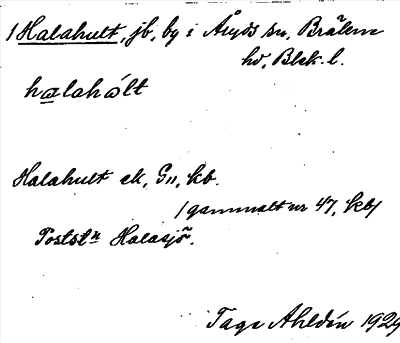 / Halahult, jb, by i Åryds sn, Bräkne
hd, Blek. l.
halahólt
Halahult ek, G11, kb.
/ gammalt nr 47, kb/
Postst:n Halasjö.
Tage Ahldén 1929